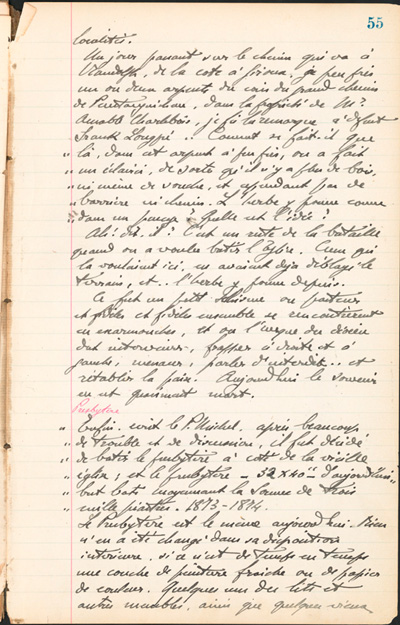 55
localités.
Un jour passant sur le chemin qui va à
de la cote à je peu près
un ou deux arpents du coin du grand chemin
de Penetanguishene, dans la propriété de Mr
Amable Charlebois, je fis remarquer à défunt
Franck Longpré : Comment se fait-il que
" là, dans cet arpent à peu près, on a fait
" un éclairci, de sorte qu'il n'y a plus de bois,
" ni même de souche, et cependant pas de
" barrière ni chemin. L'herbe y pousse comme
" dans un parc ? Quelle est l'idée ?
Ah! dit-il! C'est un reste de la bataille
quand on a voulu bâtir l'Eglise. Ceux qui
la voulaient ici, en avaient déjà déblayé le
terrain, et .. l'herbe y pousse depuis.
Ce fut un petit Schisme ou pasteurs
et fidèles et fidèles ensemble se rencontrèrent
en escarmouches, et ou l'évêque du diocèse
dut intervenir, frapper à droite et à
gauche, menacer, parler d'interdit .. et
rétablir la paix. Aujourd'hui le souvenir
en est quasiment mort.
Presbytère
" Enfin, écrit le P. Michel, après beaucoup
" de trouble et de discussion, il fut décidé
" de bâtir le presbytère à côté de la vieille
" église, et le presbytère - 32 x 40 - d'aujourd'hui
" fut bâti moyennant la somme de trois
" mille piastres. 1873-1874.
Le Presbytère est le même aujourd'hui. Rien
n'en a été changé dans sa disposition
intérieure, si ce n'est de temps en temps
une couche de peinture fraîche ou de papier
de couleur. Quelques uns des lits et
autres meubles, ainsi que quelques vieux